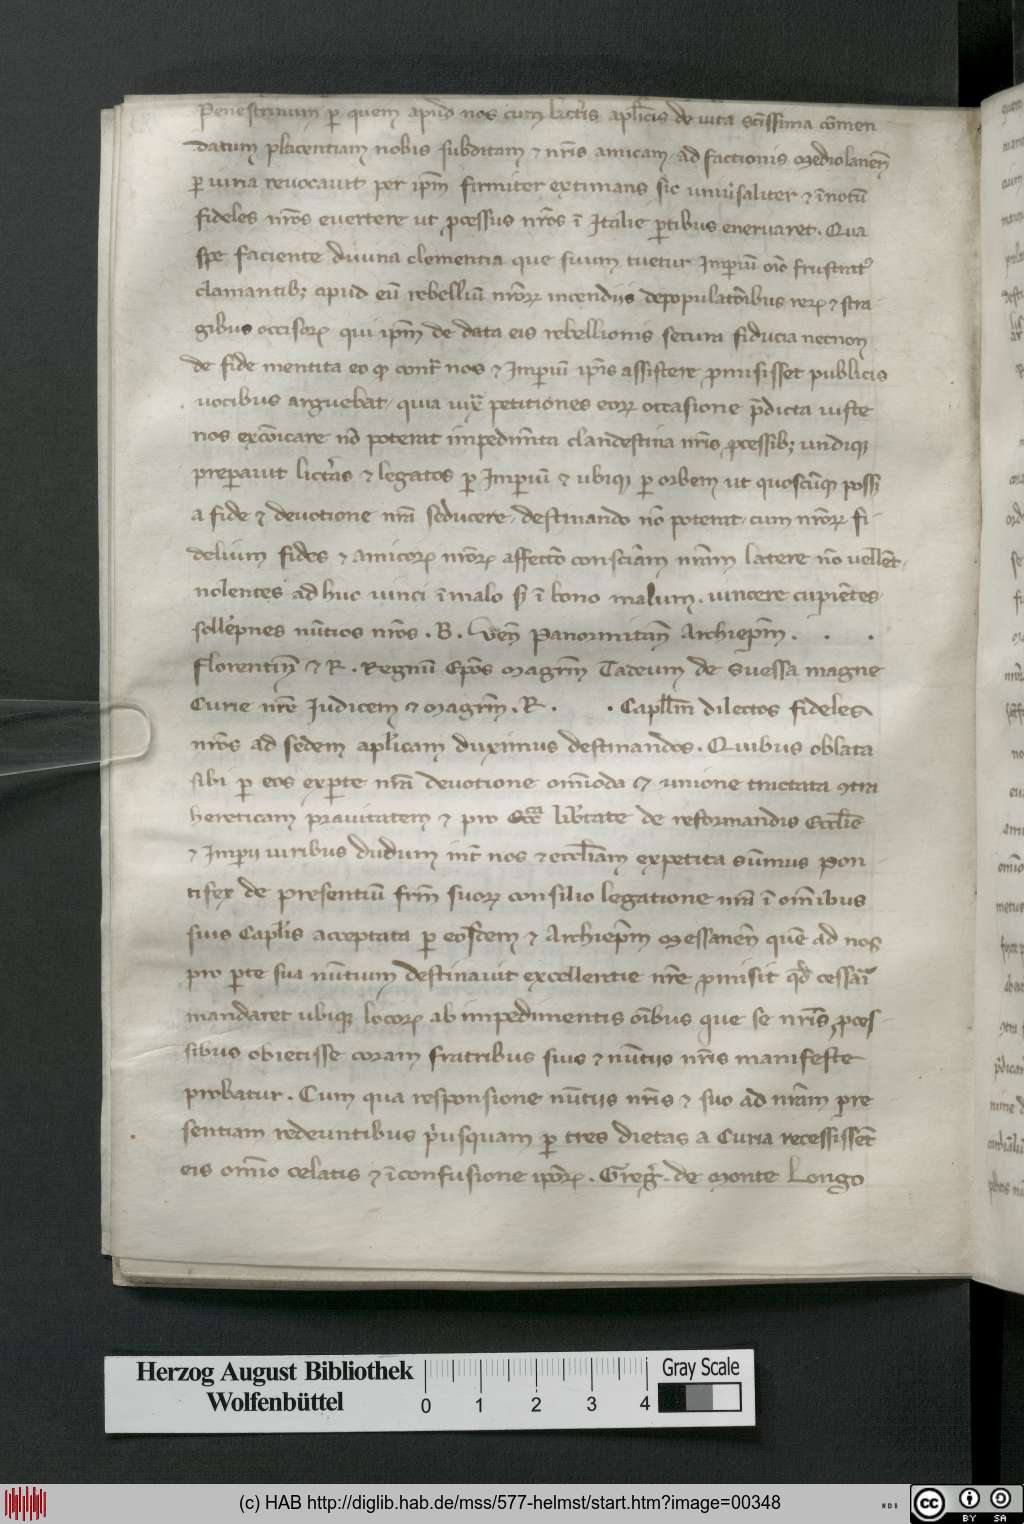 Penestrinum p quem apud nos cum lictis aplicis de vita scissima comen
datum placentiam nobis subditam & nris amicam ad factionis mediolanen
p viria revocavit per ipm firmiter extimans sic universaliter & inotu
fideles nros evertere ut pcessus nros i Italie ptibus enervaret. Qua
spe faciente divina clementia que suum tuetur Imperiu oio frustrat
clamantib; apud eu rebelliu nror incendiis depopulatoibus rer & stra
gibus occisor qui ipm de data eis rebellionis secura fiducia necnon
de fide mentita eo q contr nos & Imperiu ipis assistere pmisisset publicis
vocibus arguebat quia petitiones eorr occasione pdicta iuste
nos excoicare no poterat impedimta clandestina nris pcessib; undiq
preparavit lictas & legatos p Imperiu & ubiq p orbem ut quoscuq poss
a fide & devotione nra seducere destinando no poterat cum nror fi
delium fides & amicor nror affecto consciam nram latere no vellet
nolentes ad huc vinci i malo s i bono malum. vincere cupietes
sollepnes nutios nros . B. Ven Panormitan Archiepm . . .
florentin & R. Reginu Epos Magrm Tadeum de Suessa magne
Curie nre Iudicem & Magrm . R . . Capllm dilectos fideles
nros ad sedem aplicam duximus destinandos. Quibus oblata
sibi p eos expte nra devotione omioda & unione tractata 9tra
hereticam pravitatem & pro Ecce libtate de reformandis Ecclie
& Impii viribus dudum int nos & eccliam expetita sumus pon
tifex de presentiu frm suor consilio legatione nra i omibus
suis Caplis acceptata p eosdem & Archiepm Messanen que ad nos
pro pte sua nutium destinavit excellentie nre pmisit qd cessari
mandaret ubiq locor ab impedimentis oibus que se nris pces
sibus obiecisse coram fratribus suis & nutiis nris manifeste
probatur. Cum qua responsione nutiis nris & suo ad nram pre
sentiam redeuntibus pusquam p tres dietas a Curia recessisset
eis omio celatis & i confusione ipor. Greg. de Monte Longo
Herzog August Bibliothek
Wolfenbüttel
0 1 2 3 4
Gray Scale
(c) HAB http://diglib.hab.de/mss/577-helmst/start.htm?image=00348
WDB
cc BY SA